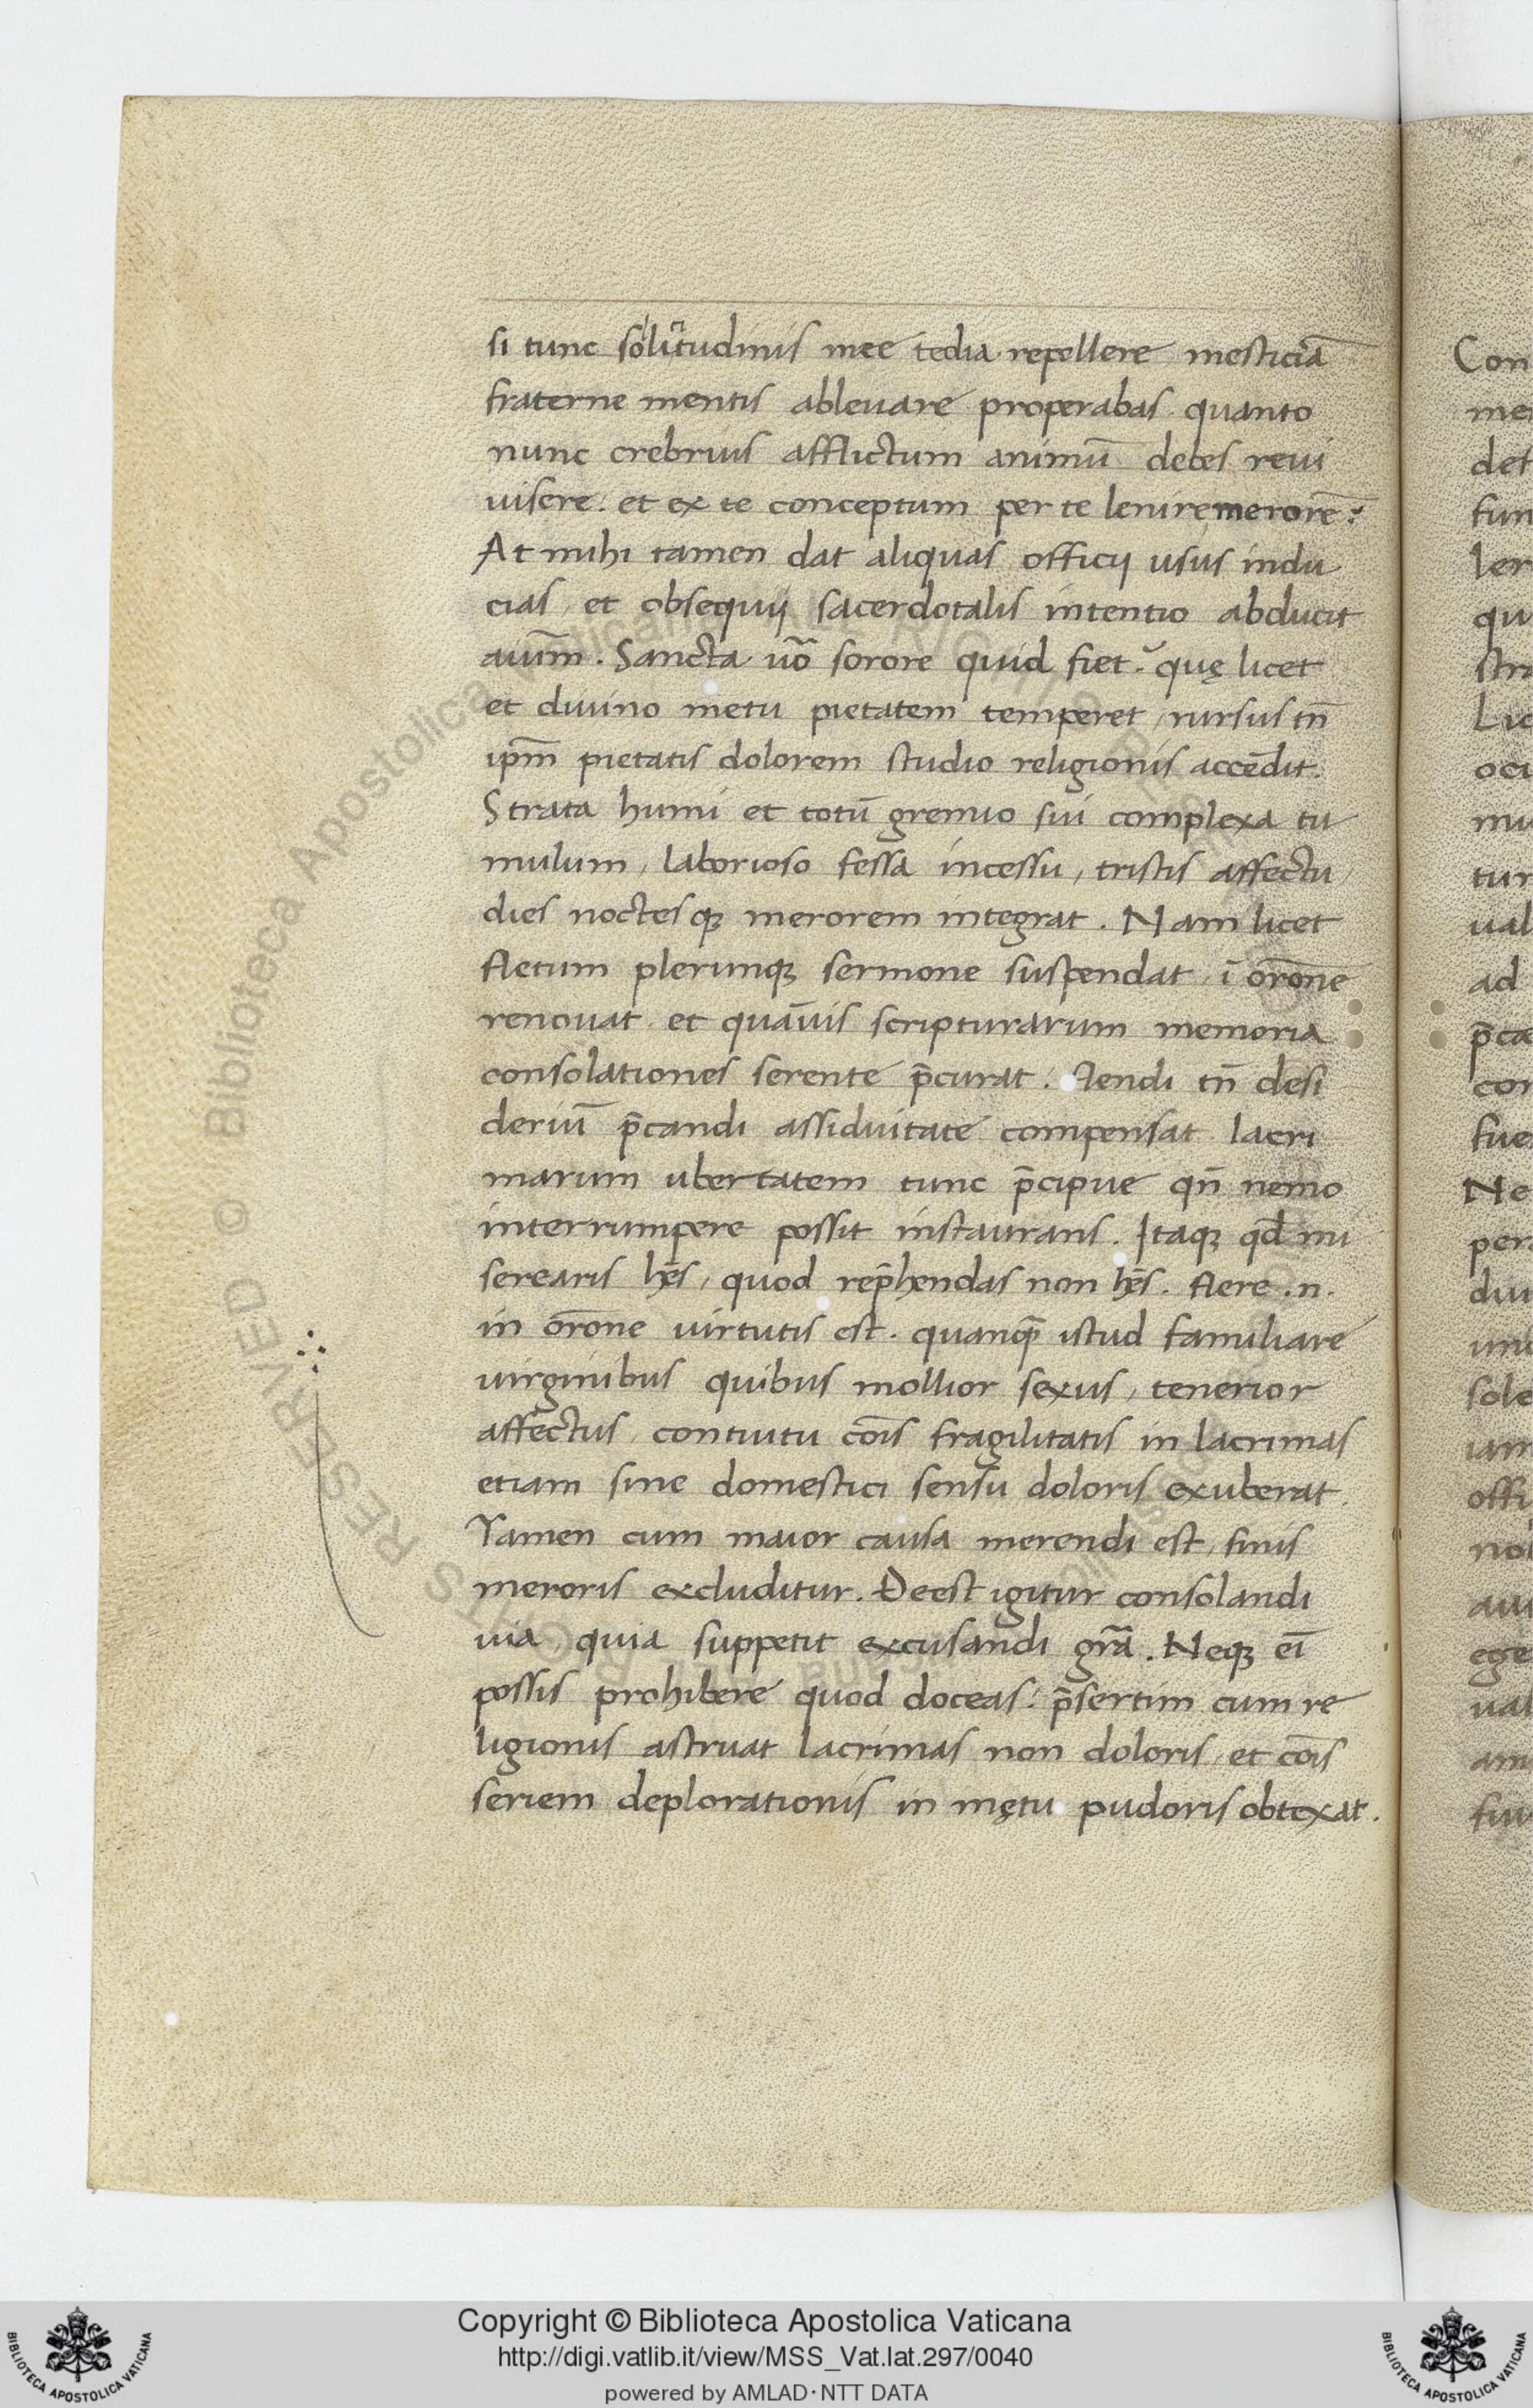 si tunc solitudinis mee tedia repellere mesticiā
fraterne mentis ableuare properabas quanto
nunc crebrius afflictum animū debes reui
uisere. et ex te conceptum per te lenire merorē?
At mihi tamen dat aliquas officij usus indu
cias et obsequij sacerdotalis intentio abducit
aium̄. Sancta uō sorore quid fiet? quę licet
et diuino metu pietatem temperet, rursus tn̄
ipm̄ pietatis dolorem studio religionis accēdit.
Strata humi et totū gremio sui complexa tu
mulum, laborioso fessa incessu, tristis affectu
dies noctesqꝫ merorem integrat. Nam licet
fletum plerunqꝫ sermone suspendat ī orōne
renouat et quāuis scripturarum memoria
consolationes serente p̄curat. flendi tn̄ desi
deriū p̄candi assiduitate compensat lacri
marum ubertatem tunc p̄cipue qn̄ nemo
interrumpere possit instaurans. Itaqꝫ qd̄ mi
serearis hēs, quod rep̄hendas non hēs. flere .n.
in orōne uirtutis est. quanqꝫ̄ istud familiare
uirginibus quibus mollior sexus, tenerior
affectus contuitu cōis fragilitatis in lacrimas
etiam sine domestici sensu doloris exuberat.
Tamen cum maior causa merendi est, finis
meroris excluditur. Deest igitur consolandi
uia, quia suppetit excusandi grā. Neqꝫ ei̅
possis prohibere quod doceas: p̄sertim cum re
ligionis astruat lacrimas non doloris, et cōis
seriem deplorationis in mętu pudoris obtexat.
Con
me
det
fun
len
qu
stra
Lic
ocu
mu
tur
ual
ad
p̄ca
con
fue
Ne
per
diu
uni
sole
iam
offi
nol
aui
ege
ual
am
fiu
RESERVED © Biblioteca Apostolica Vaticana
Copyright © Biblioteca Apostolica Vaticana
http://digi.vatlib.it/view/MSS_Vat.lat.297/0040
powered by AMLAD·NTT DATA
BIBLIOTECA APOSTOLICA VATICANA
BIBLIOTECA APOSTOLICA VATICANA